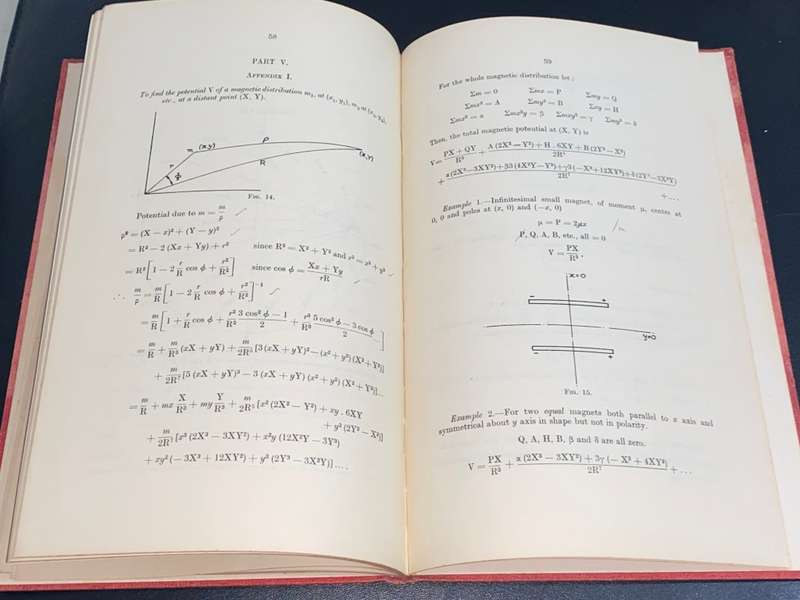 58
PART V.
APPENDIX I.
To find the potential V of a magnetic distribution m₁, at (x₁, y₁), m₂ at (x₂, y₂),
etc., at a distant point (X, Y).
m (x,y)
ρ
(X,Y)
r
R
Φ
FIG. 14.
Potential due to m = m/ρ
ρ² = (X − x)² + (Y − y)²
= R² − 2 (Xx + Yy) + r² since R² = X² + Y² and r² = x² + y²
= R² [1 − 2 r/R cos φ + r²/R²] since cos φ = (Xx + Yy)/rR
∴ m/ρ = m/R [1 − 2 r/R cos φ + r²/R²]^−½
= m/R [1 + r/R cos φ + r²/R² (3 cos² φ − 1)/2 + r³/R³ (5 cos³ φ − 3 cos φ)/2 ...]
= m/R + m/R³ (xX + yY) + m/2R⁵ [3 (xX + yY)² − (x² + y²) (X² + Y²)]
+ m/2R⁷ [5 (xX + yY)³ − 3 (xX + yY) (x² + y²) (X² + Y²)] ...
= m/R + mx X/R³ + my Y/R³ + m/2R⁵ [x² (2X² − Y²) + xy . 6XY
+ y² (2Y² − X²)]
+ m/2R⁷ [x³ (2X³ − 3XY²) + x²y (12X²Y − 3Y³)
+ xy² (− 3X³ + 12XY²) + y³ (2Y³ − 3X²Y)] ....
59
For the whole magnetic distribution let :
Σm = 0 Σmx = P Σmy = Q
Σmx² = A Σmy² = B Σxy = H
Σmx³ = α Σmx²y = β Σmxy² = γ Σmy³ = δ
Then, the total magnetic potential at (X, Y) is
V = (PX + QY)/R³ + (A (2X² − Y²) + H . 6XY + B (2Y² − X²))/2R⁵
+ (α (2X³ − 3XY²) + β3 (4X²Y − Y³) + γ3 (− X³ + 12XY²) + δ (2Y³ − 3X²Y))/2R⁷
+ ...
Example 1.—Infinitesimal small magnet, of moment μ, center at
0, 0 and poles at (x, 0) and (−x, 0)
μ = P = 2μx
P, Q, A, B, etc., all = 0
V = PX/R³.
x=0
− +
y=0
− +
FIG. 15.
Example 2.—For two equal magnets both parallel to x axis and
symmetrical about y axis in shape but not in polarity.
Q, A, H, B, β and δ are all zero.
V = PX/R³ + (α (2X³ − 3XY²) + 3γ (− X³ + 4XY²))/2R⁷ + ...